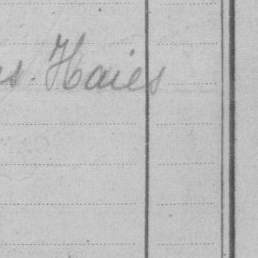 s. Haies